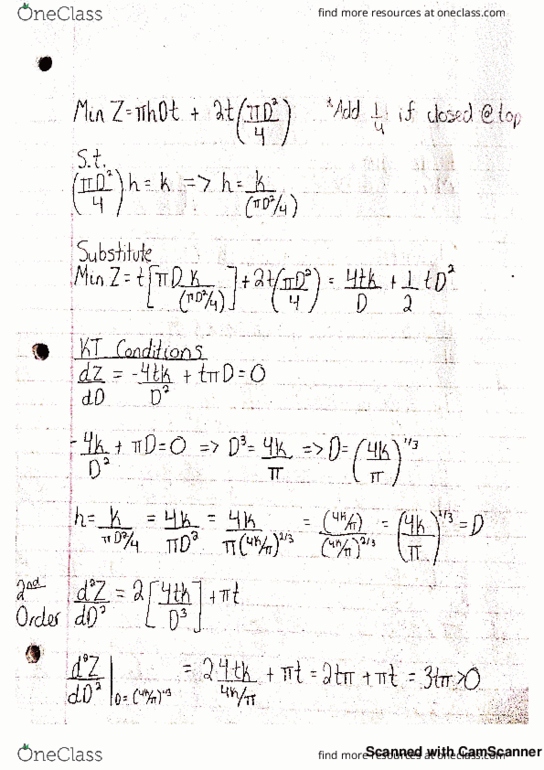 OneClass
find more resources at oneclass.com
Min Z = πhDt + 2t(πD²/4) *Add 1/4 if closed @ top
S.t.
(πD²/4) h = k => h = k/(πD²/4)
Substitute
Min Z = t[πD k/(πD²/4)] + 2t(πD²/4) = 4tk/D + 1/2 tD²
KT Conditions
dZ/dD = -4tk/D² + tπD = 0
-4k/D² + πD = 0 => D³ = 4k/π => D = (4k/π)^1/3
h = k/(πD²/4) = 4k/πD² = 4k/π(4k/π)^2/3 = (4k/π)/(4k/π)^2/3 = (4k/π)^1/3 = D
2nd Order d²Z/dD² = 2[4tk/D³] + πt
d²Z/dD² | D=(4k/π)^1/3 = 2 4tk/(4k/π) + πt = 2tπ + πt = 3tπ > 0
OneClass
find more resources at oneclass.com
Scanned with CamScanner